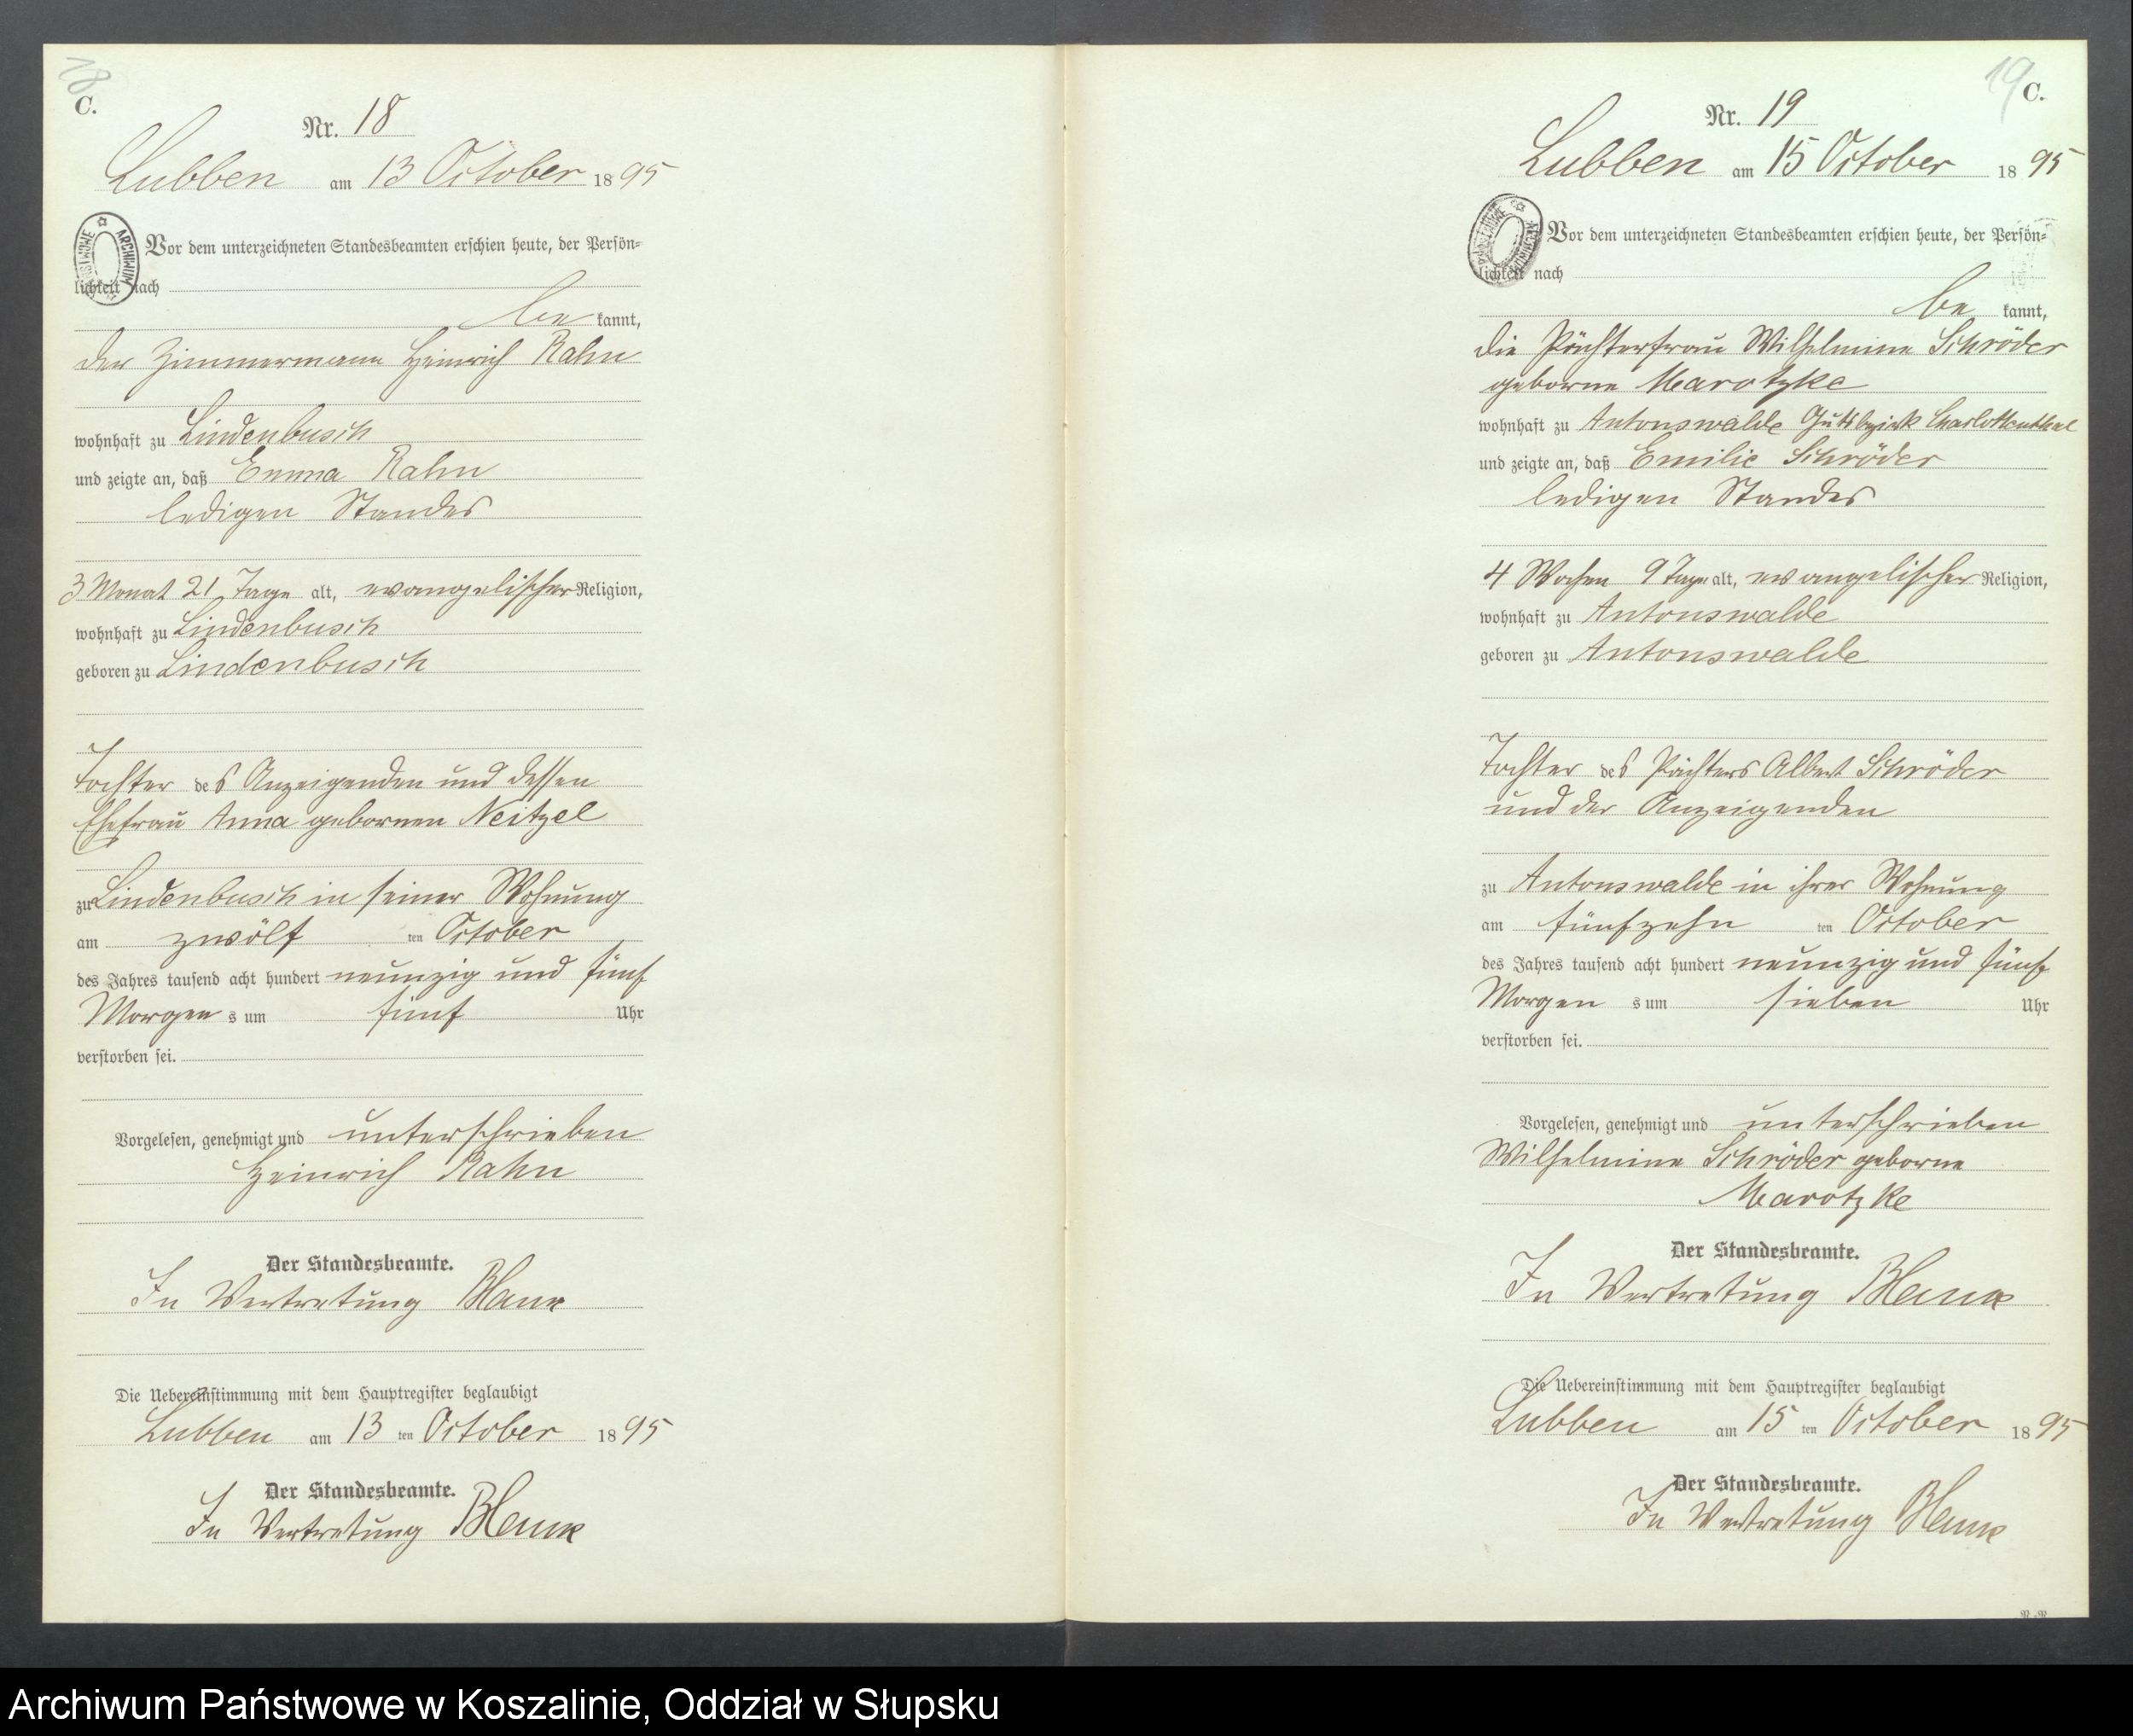 18
C.
Nr. 18
Lubben am 13 October 1895
Vor dem unterzeichneten Standesbeamten erschien heute, der Persön=
lichkeit nach
be kannt,
der Zimmermann Heinrich Rahn
wohnhaft zu Lindenbusch
und zeigte an, daß Emma Rahn
ledigen Standes
3 Monat 21 Tage alt, evangelischer Religion,
wohnhaft zu Lindenbusch
geboren zu Lindenbusch
Tochter des Anzeigenden und dessen
Ehefrau Anna gebornen Neitzel
zu Lindenbusch in seiner Wohnung
am zwölf ten October
des Jahres tausend acht hundert neunzig und fünf
Morgen s um fünf Uhr
verstorben sei.
Vorgelesen, genehmigt und unterschrieben
Heinrich Rahn
Der Standesbeamte.
In Vertretung Blank
Die Uebereinstimmung mit dem Hauptregister beglaubigt
Lubben am 13 ten October 1895
Der Standesbeamte.
In Vertretung Blank
19
C.
Nr. 19
Lubben am 15 October 1895
ARCHIWUM
Vor dem unterzeichneten Standesbeamten erschien heute, der Persön=
lichkeit nach
be kannt,
die Pächterfrau Wilhelmine Schröder
geborne Marotzke
wohnhaft zu Antonswalde Gutsbezirk Charlottenthal
und zeigte an, daß Emilie Schröder
ledigen Standes
4 Wochen 9 Tage alt, evangelischer Religion,
wohnhaft zu Antonswalde
geboren zu Antonswalde
Tochter des Pächters Albert Schröder
und der Anzeigenden
zu Antonswalde in ihrer Wohnung
am fünfzehn ten October
des Jahres tausend acht hundert neunzig und fünf
Morgen s um sieben Uhr
verstorben sei.
Vorgelesen, genehmigt und unterschrieben
Wilhelmine Schröder geborne
Marotzke
Der Standesbeamte.
In Vertretung Blank
Die Uebereinstimmung mit dem Hauptregister beglaubigt
Lubben am 15 ten October 1895
Der Standesbeamte.
In Vertretung Blank
Archiwum Państwowe w Koszalinie, Oddział w Słupsku